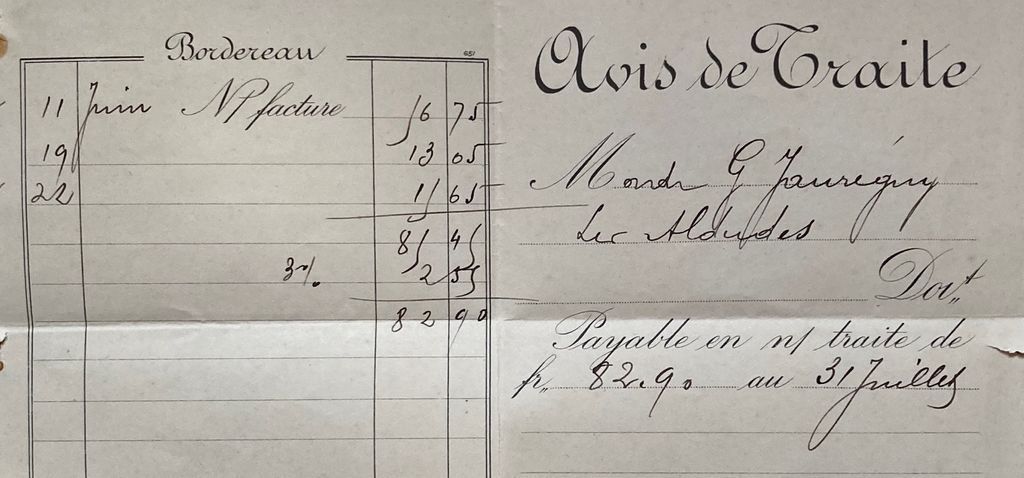 Bordereau
11 Juin N/ facture 56 75
19 13 05
22 15 65
85 45
3% 2 55
82 90
Avis de Traite
G Jauréguy
Les Aldudes
Doit
Payable en n/ traite de
fr,, 82.90 au 31 Juillet